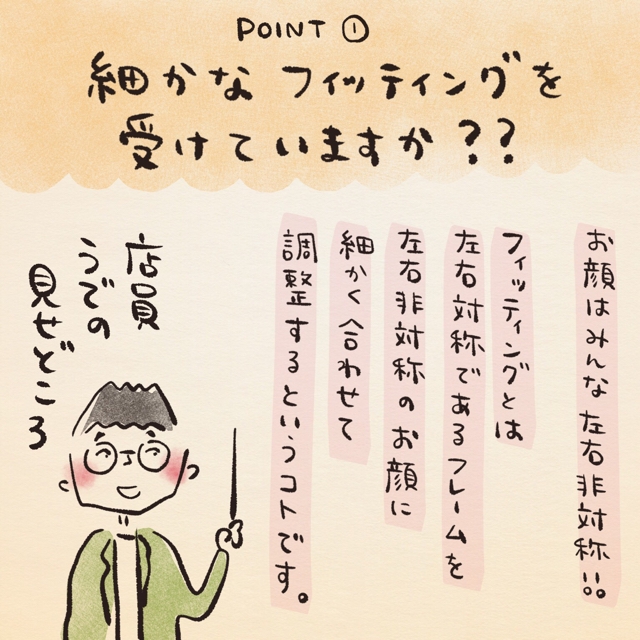 POINT ①
細かなフィッティングを
受けていますか??
お顔はみんな左右非対称!!
フィッティングとは
左右対称であるフレームを
左右非対称のお顔に
細かく合わせて
調整するというコトです。
店員
うでの
見せどころ